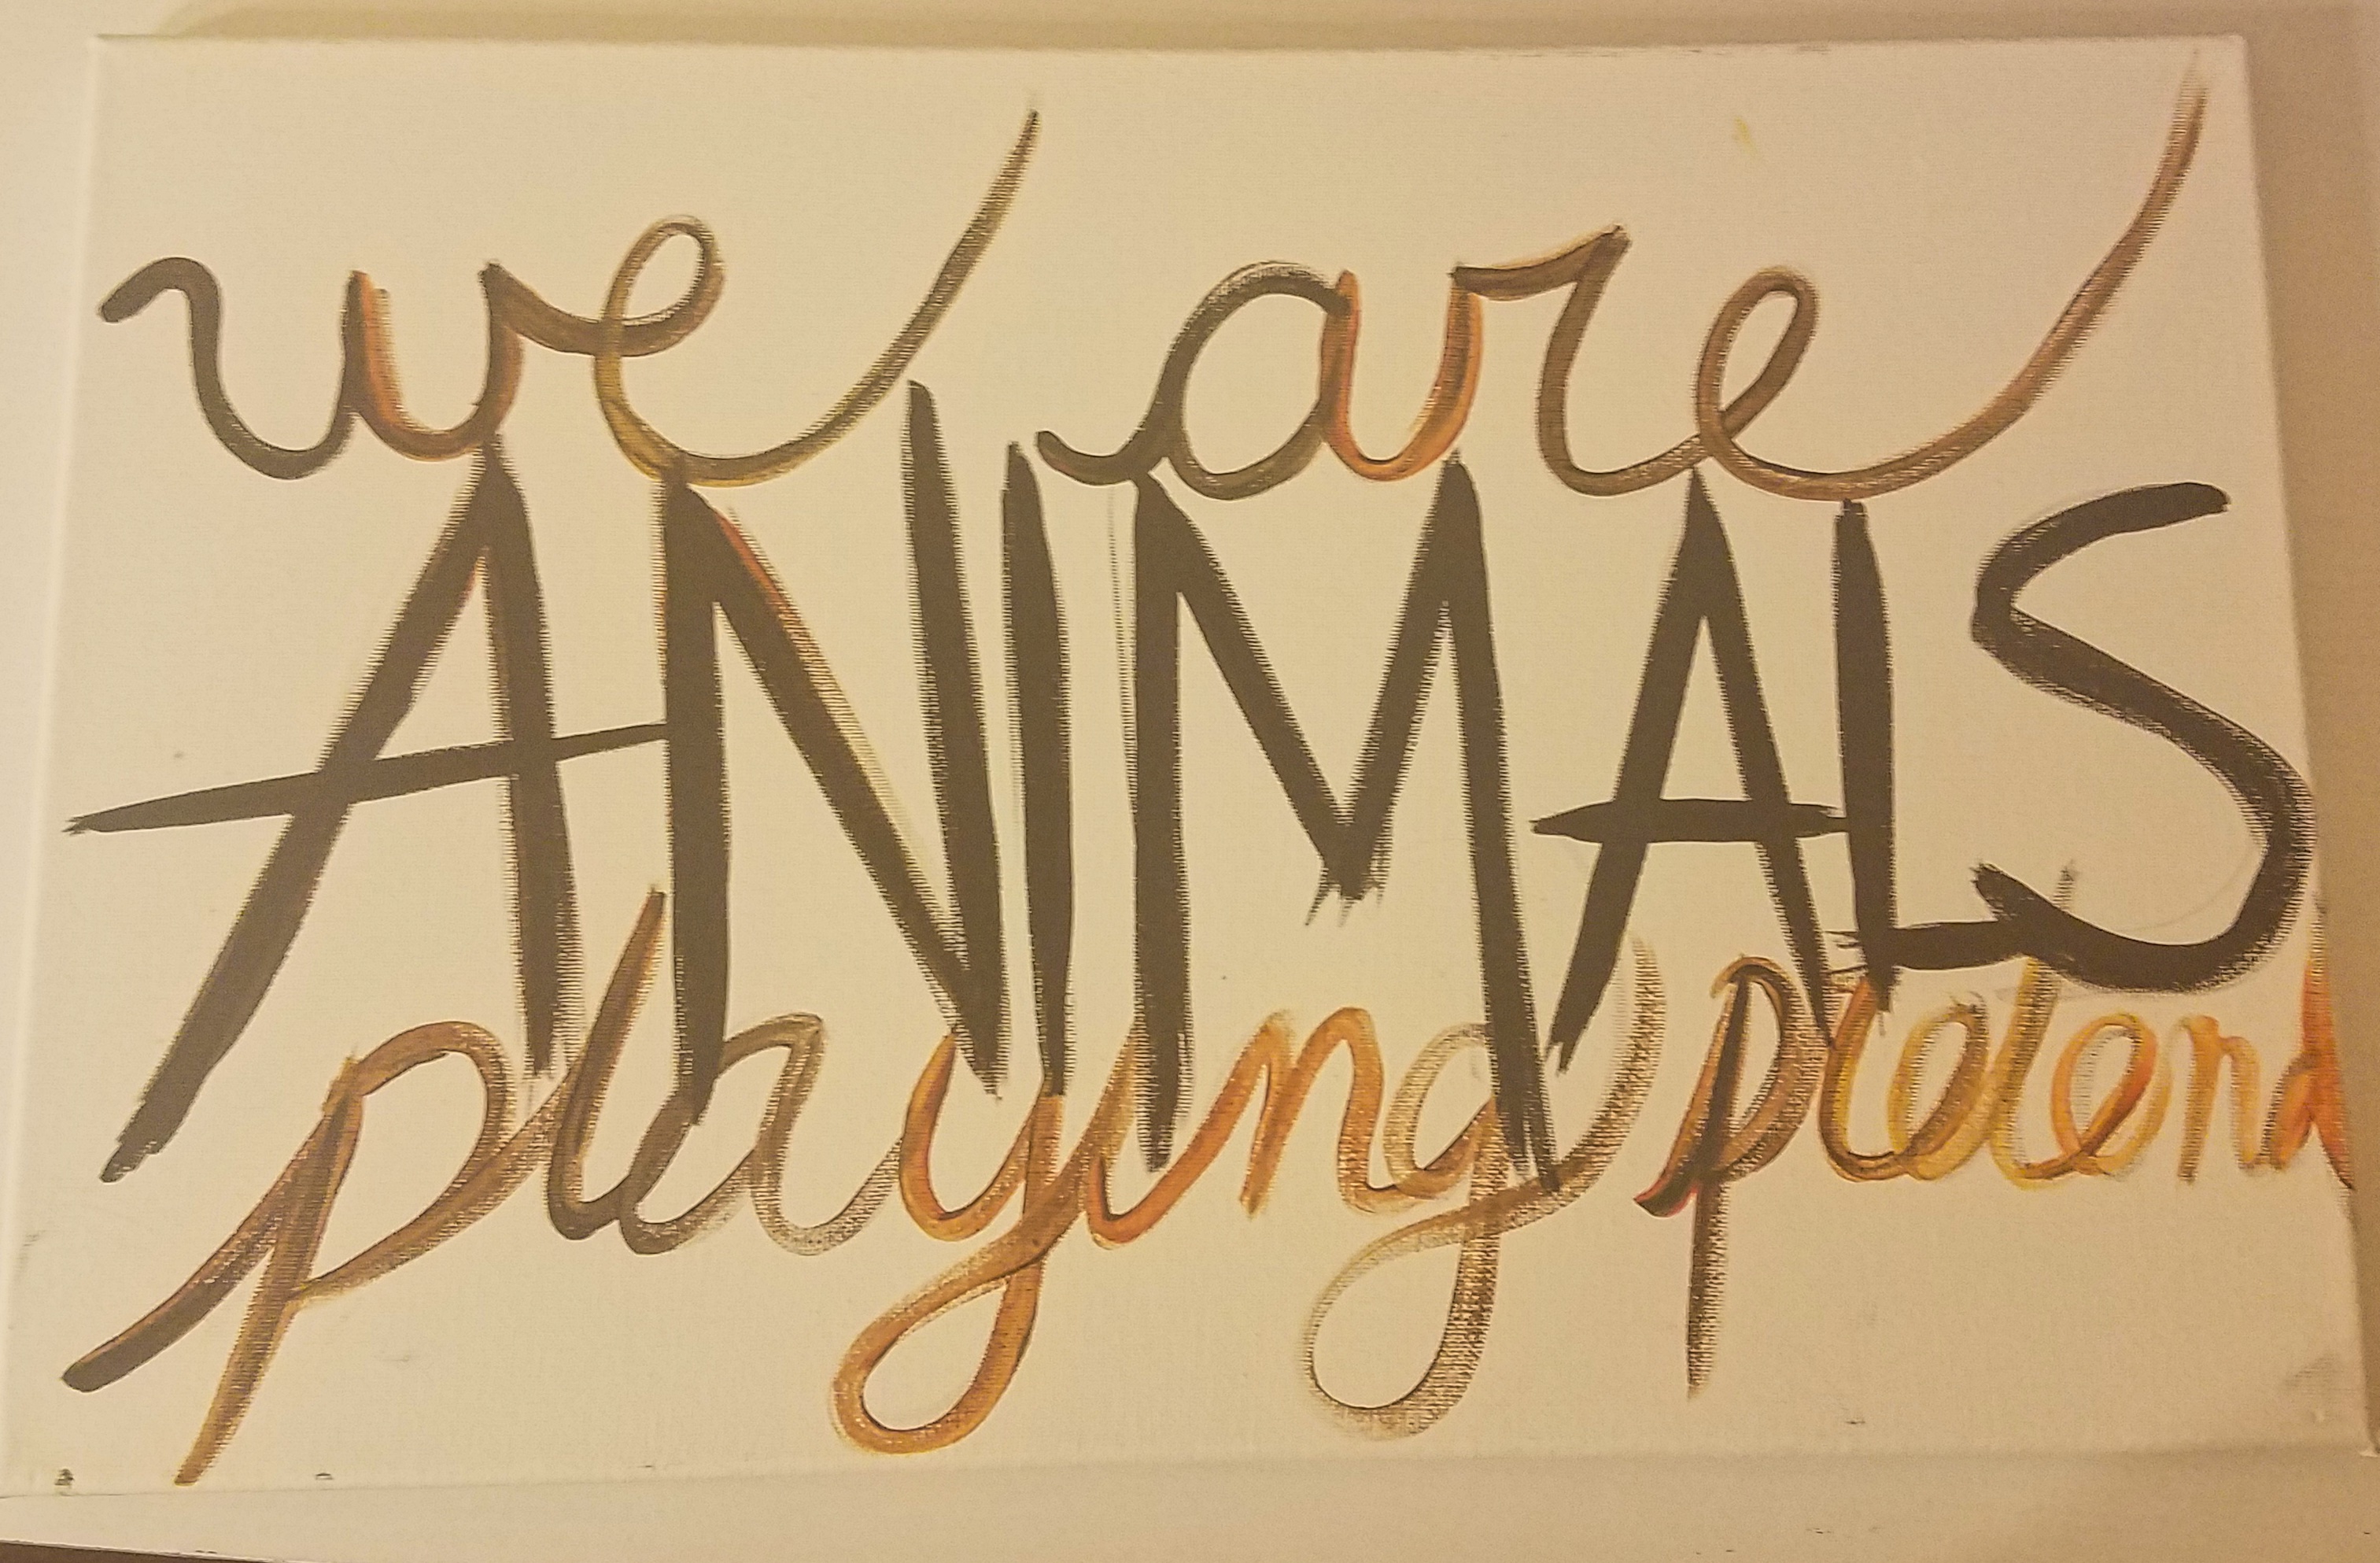 we are
ANIMALS
playing pretend